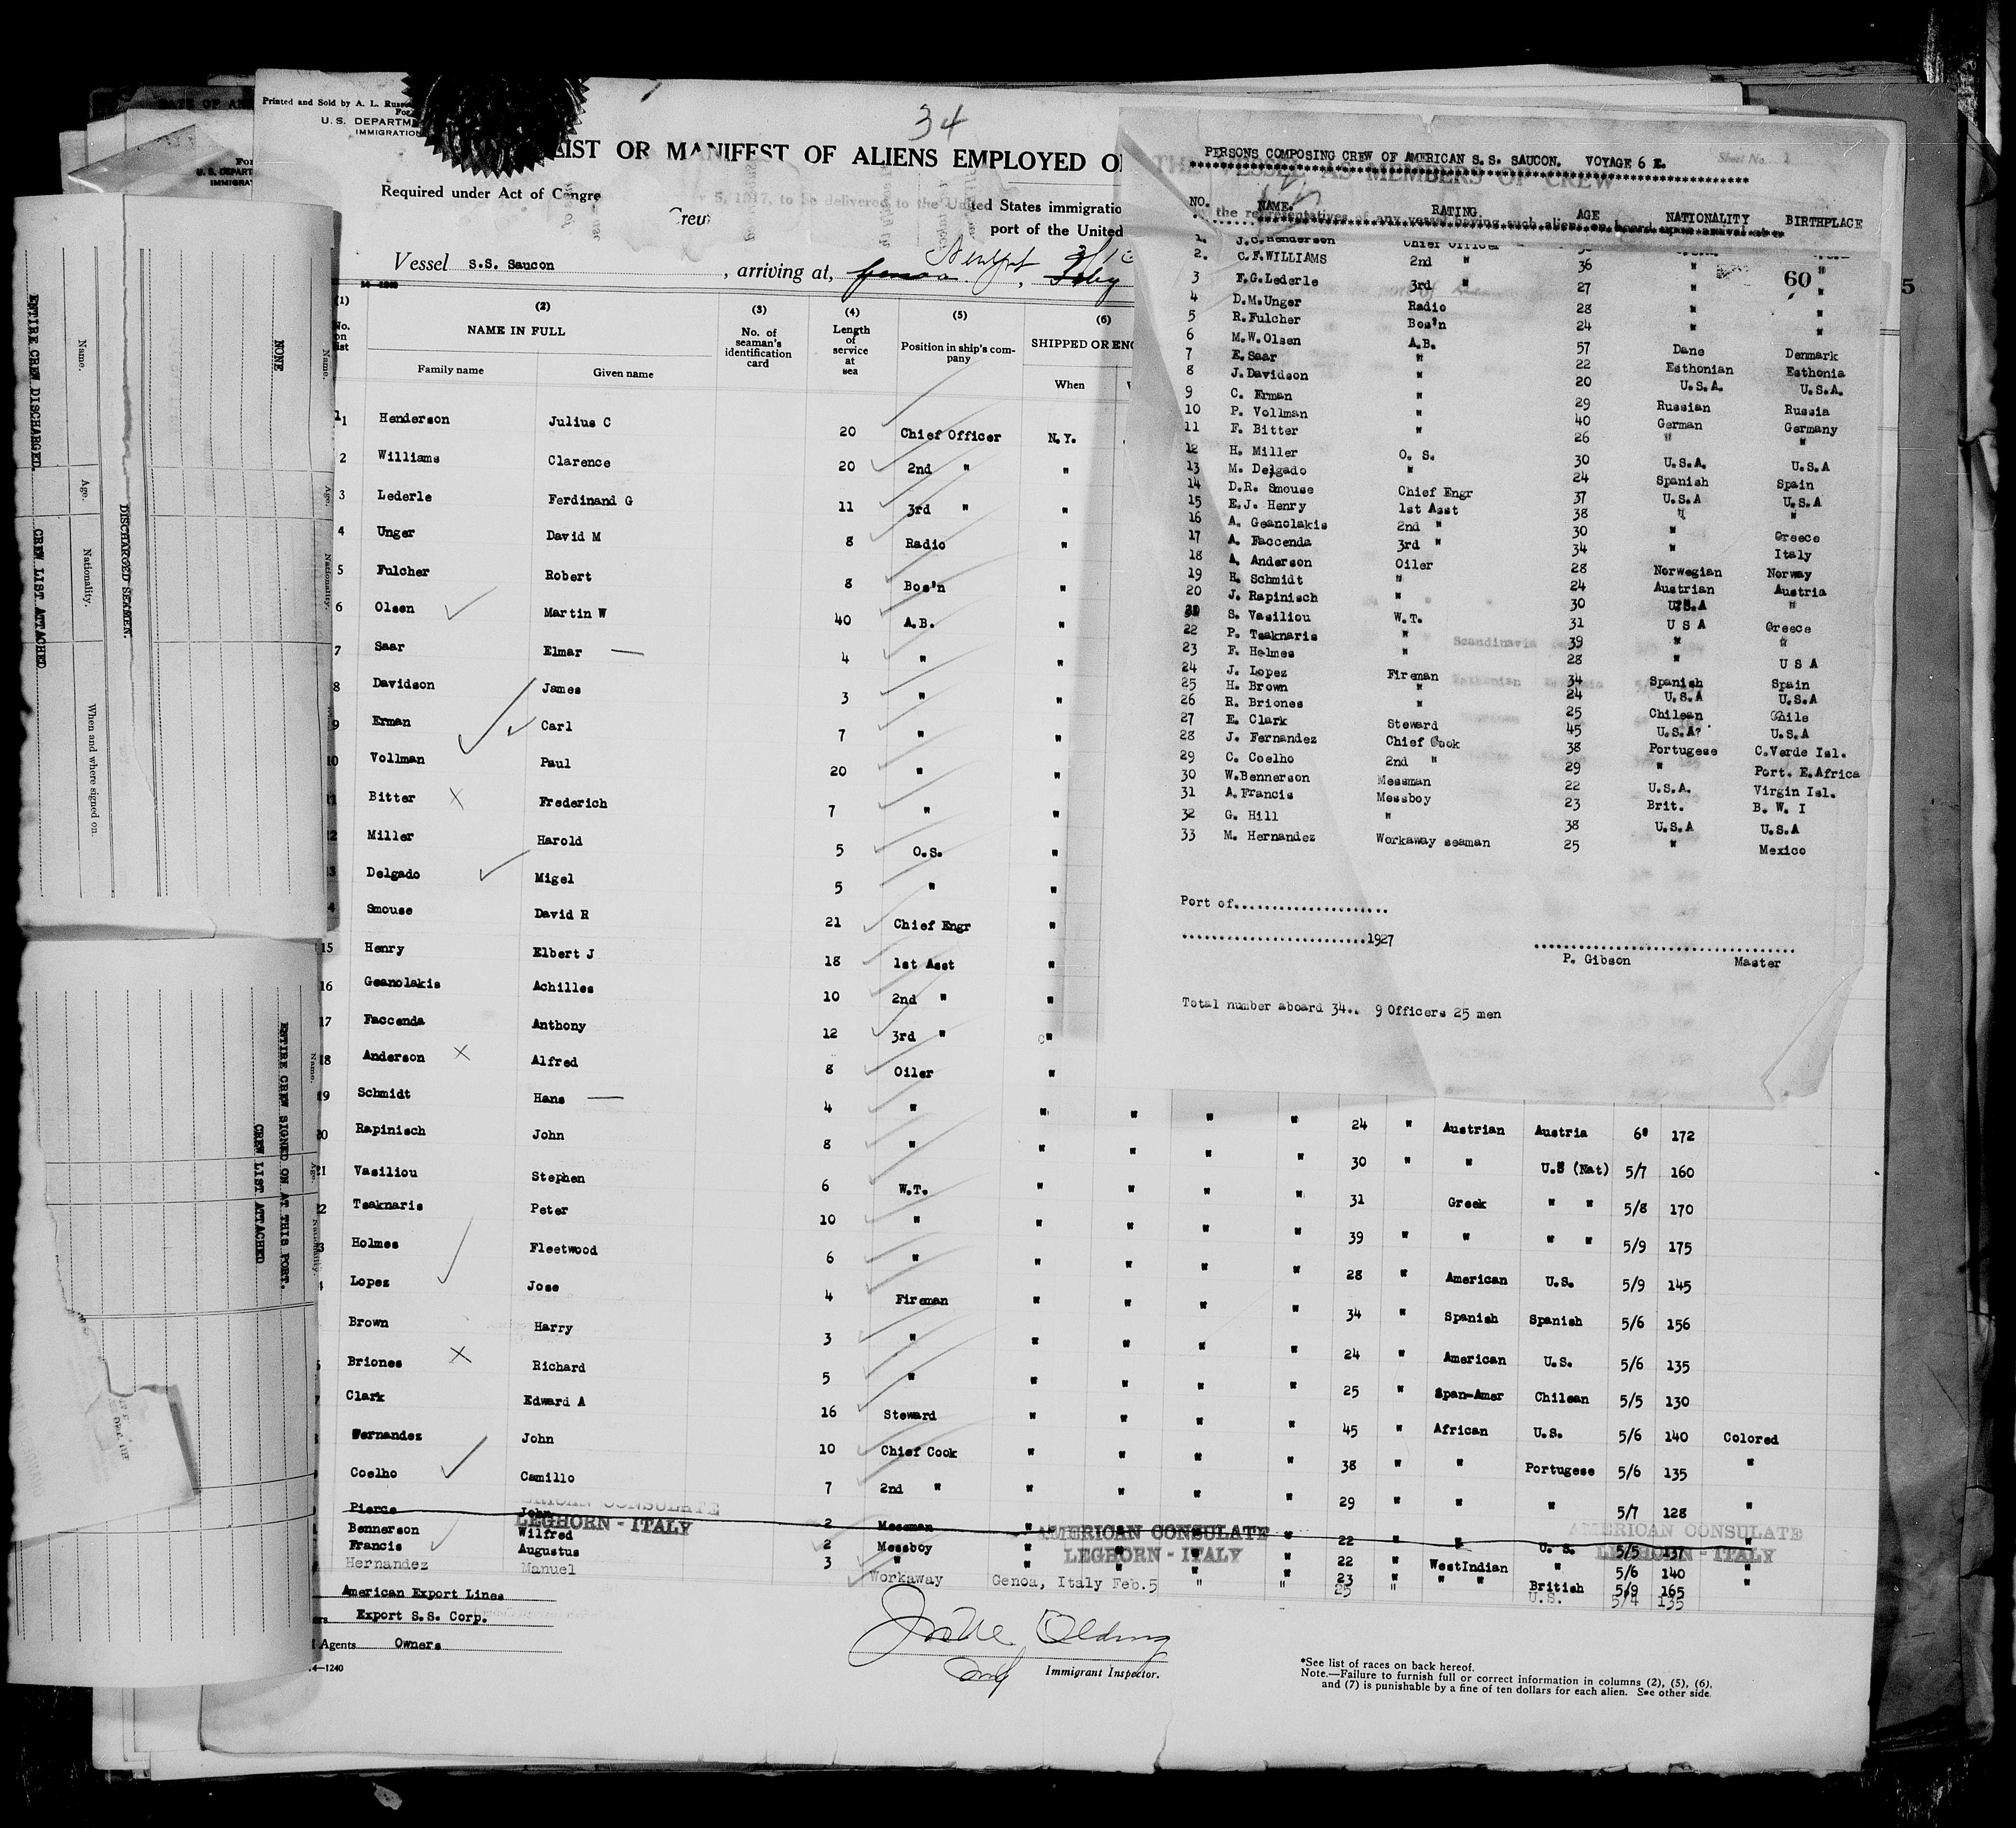 34
Printed and Sold by A. L.
U. S. DEPARTM
IMMIGRATIO
LIST OR MANIFEST OF ALIENS EMPLOYED O
Required under Act of Congre
5, 1917, to be delivered to the United States immigratio
port of the United
Vessel S.S. Saucon , arriving at, Newport
14—1240
(1) (2) (3) (4) (5) (6)
No. on list NAME IN FULL No. of seaman's identification card Length of service at sea Position in ship's company SHIPPED OR ENG
Family name Given name When
1 Henderson Julius C 20 Chief Officer N.Y.
2 Williams Clarence 20 2nd " "
3 Lederle Ferdinand G 11 3rd " "
4 Unger David M 8 Radio "
5 Fulcher Robert 8 Bos'n "
6 Olsen Martin W 40 A.B. "
7 Saar Elmar 4 " "
8 Davidson James 3 " "
9 Erman Carl 7 " "
10 Vollman Paul 20 " "
11 Bitter Frederich 7 " "
12 Miller Harold 5 O.S. "
13 Delgado Migel 5 " "
4 Smouse David R 21 Chief Engr "
15 Henry Elbert J 18 1st Asst "
16 Geanolakis Achilles 10 2nd " "
17 Faccenda Anthony 12 3rd " "
18 Anderson Alfred 8 Oiler "
19 Schmidt Hans 4 " " " " " 24 " Austrian Austria 6' 172
20 Rapinisch John 8 " " " " " 30 " " U.S (Nat) 5/7 160
21 Vasiliou Stephen 6 W.T. " " " " 31 Greek " " 5/8 170
22 Tsaknaris Peter 10 " " " " " 39 " " " " 5/9 175
3 Holmes Fleetwood 6 " " " " " 28 " American U.S. 5/9 145
Lopez Jose 4 Fireman " " " " 34 " Spanish Spanish 5/6 156
Brown Harry 3 " " " " " 24 " American U.S. 5/6 135
Briones Richard 5 " " " " " 25 " Span-Amer Chilean 5/5 130
Clark Edward A 16 Steward " " " " 45 " African U.S. 5/6 140 Colored
Fernandez John 10 Chief Cook " " " " 38 " " Portugese 5/6 135 "
Coelho Camillo 7 2nd " " " " " 29 " " " 5/7 128 "
Pierce John 2 Messman " " " " 22 " " U. S. 5/5 137 "
Bennerson Wilfred 2 Messboy " " " " 22 " WestIndian " 5/6 140 "
Francis Augustus 3 " " " " " 23 " " " British 5/9 165 "
Hernandez Manuel Workaway Genoa, Italy Feb.5 " " 25 " U.S. 5/4 135
AMERICAN CONSULATE
LEGHORN - ITALY
AMERICAN CONSULATE
LEGHORN - ITALY
AMERICAN CONSULATE
LEGHORN - ITALY
American Export Lines
Export S.S. Corp.
Agents Owners
14—1240
Immigrant Inspector.
*See list of races on back hereof.
Note.—Failure to furnish full or correct information in columns (2), (5), (6),
and (7) is punishable by a fine of ten dollars for each alien. See other side.
PERSONS COMPOSING CREW OF AMERICAN S.S. SAUCON. VOYAGE 6 E.
Sheet No. 1
THE VESSEL AS MEMBERS OF CREW
the representatives of any vessel having such aliens on board upon arrival
NO. NAME. RATING. AGE NATIONALITY BIRTHPLACE
1. J.C.Henderson Chief Officer
2. C.F.WILLIAMS 2nd " 36 " "
60
5
3 F.G.Lederle 3rd " 27 " "
4 D.M.Unger Radio 28 " "
5 R.Fulcher Bos'n 24 " "
6 M.W.Olsen A.B. 57 Dane Denmark
7 E.Saar " 22 Esthonian Esthonia
8 J.Davidson " 20 U.S.A. U.S.A.
9 C. Erman " 29 Russian Russia
10 P. Vollman " 40 German Germany
11 F. Bitter " 26 " "
12 H. Miller O. S. 30 U.S.A. U.S.A
13 M. Delgado " 24 Spanish Spain
14 D.R. Smouse Chief Engr 37 U.S.A U.S.A
15 E.J. Henry 1st Asst 38 " "
16 A. Geanolakis 2nd " 30 " Greece
17 A. Faccenda 3rd " 34 " Italy
18 A. Anderson Oiler 28 Norwegian Norway
19 H. Schmidt " 24 Austrian Austria
20 J. Rapinisch " 30 U.S.A "
21 S. Vasiliou W.T. 31 U S A Greece
22 P. Tsaknaris " 39 " "
23 F. Holmes " 28 " U S A
24 J. Lopez Fireman 34 Spanish Spain
25 H. Brown " 24 U.S.A U.S.A
26 R. Briones " 25 Chilean Chile
27 E. Clark Steward 45 U.S.A? U.S.A
28 J. Fernandez Chief Cook 38 Portugese C.Verde Isl.
29 C. Coelho 2nd " 29 " Port. E.Africa
30 W.Bennerson Messman 22 U.S.A. Virgin Isl.
31 A.Francis Messboy 23 Brit. B. W. I
32 G. Hill " 38 U.S.A U.S.A
33 M. Hernandez Workaway seaman 25 " Mexico
Port of.....................
.........................1927
P. Gibson Master
Total number aboard 34.. 9 Officers 25 men
NONE
DISCHARGED SEAMEN.
Name. Age. Nationality. When and where signed on.
ENTIRE CREW DISCHARGED. CREW LIST ATTACHED
Name. Age. Nationality.
ENTIRE CREW SIGNED ON AT THIS PORT.
CREW LIST ATTACHED
Name. Age. Nationality.